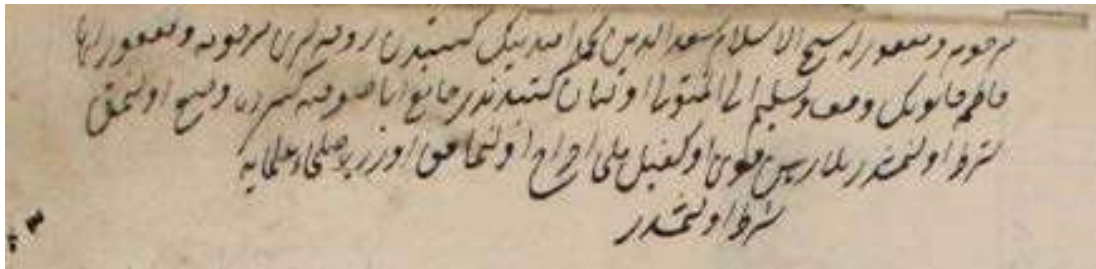 مرحوم و مغفور له شيخ الاسلام سعد الدين محمد افندينك كتبندن زوجه لرى مرحومه و مغفور لها
فاطمه خاتونك وقف و تسليم الى المتولى اولنان كتبدندر جامع اياصوفيه كبيرده وضع اولنمق
شرط اولنمشدر رهن قوى او كفيل ملى اخراج اولنمامق اوزره
شرط اولنمشدر